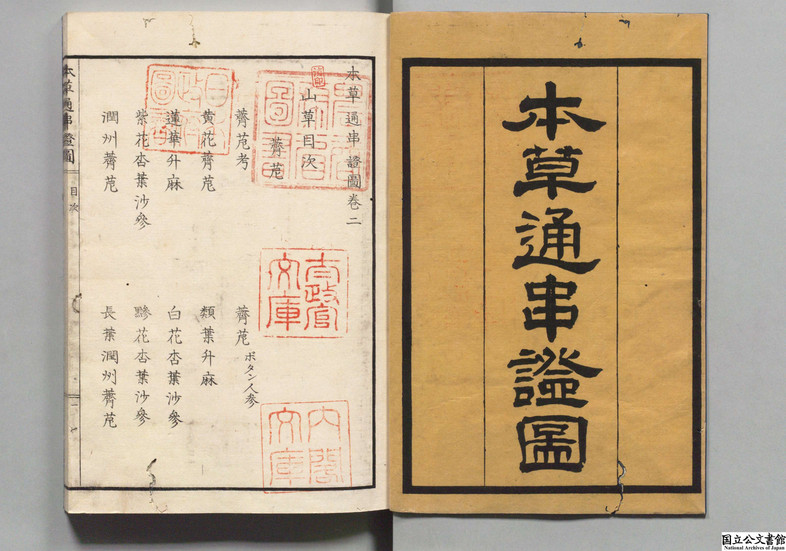 本草通串證圖
本草通串證圖卷二
山草目次
薺苨
薺苨考
薺苨 ボタン人参
黄花薺苨
類葉升麻
蓮華升麻
白花杏葉沙參
紫花杏葉沙參
黲花杏葉沙參
潤州薺苨
長葉潤州薺苨
本草通串證圖
目次
一
太政官文庫
内閣文庫
国立公文書館
National Archives of Japan